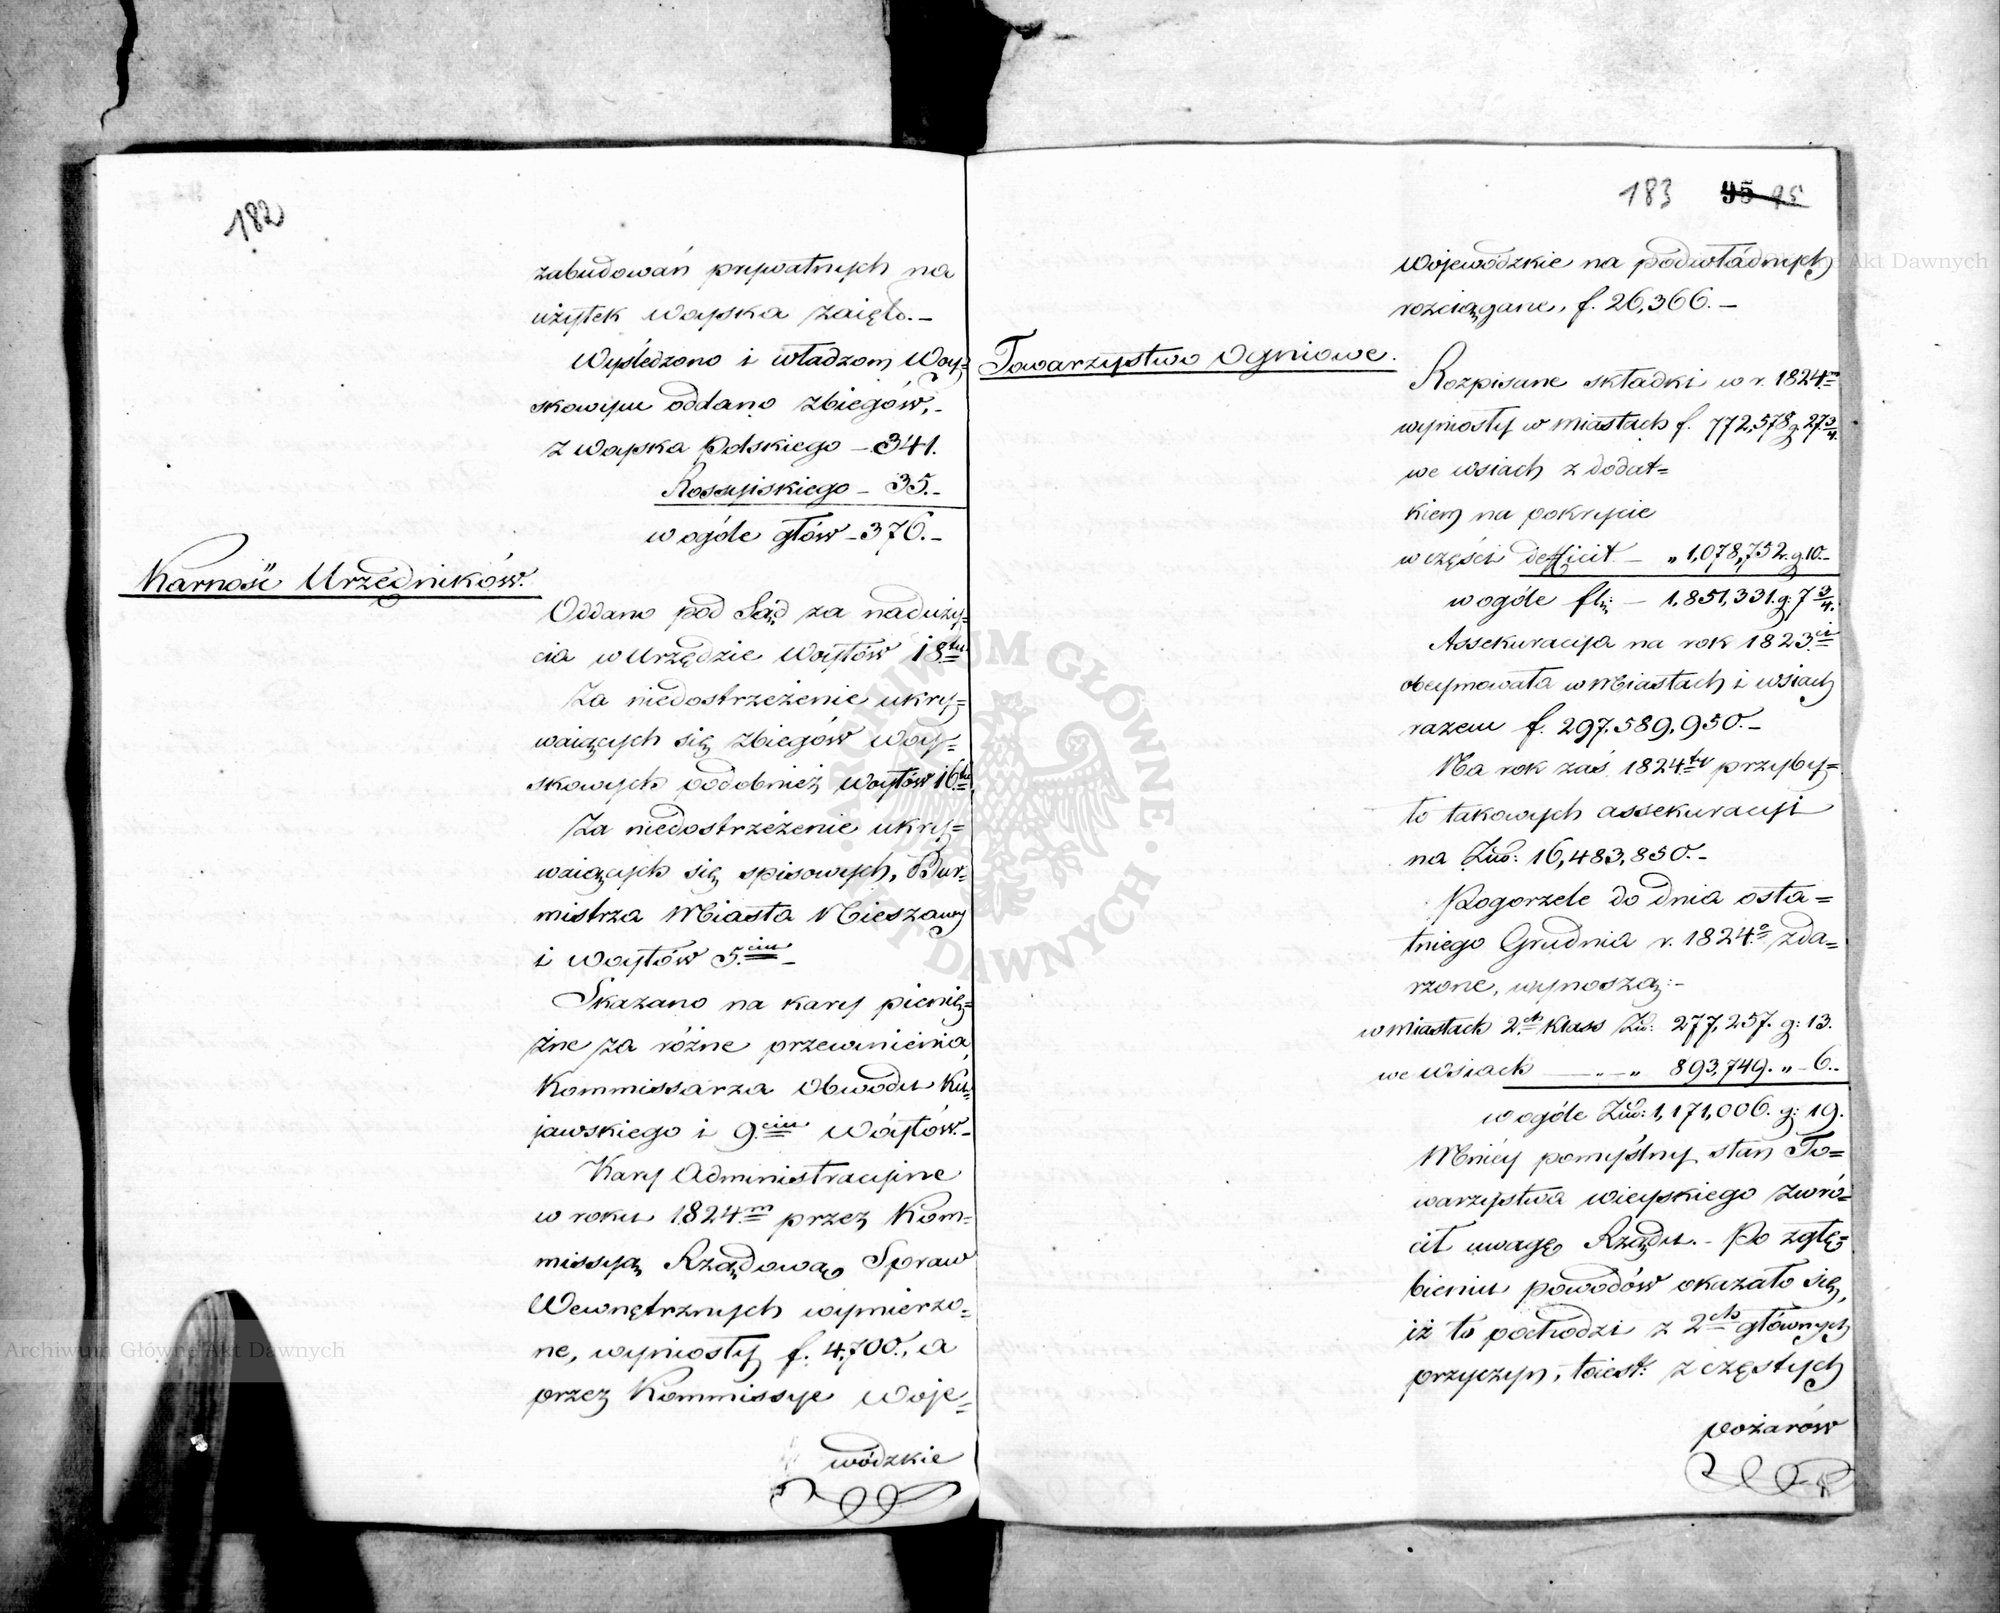 182
zabudowań prywatnych na
użytek woyska zaięło.–
Wyśledzono i władzom Woy=
skowym oddano zbiegów,–
z woyska Polskiego – 341.
Rossyiskiego – 35.–
w ogóle głów – 376.–
Karność Urzędników.
Oddano pod Sąd za naduży=
cia w Urzędzie Woytów 18tu
Za niedostrzeżenie ukry=
waiących się zbiegów woy=
skowych podobnież Woytów 16tu
Za niedostrzeżenie ukry=
waiących się spisowych, Bur=
mistrza Miasta Nieszawy
i Woytów 5ciu –
Skazano na kary pienię=
żne za różne przewinienia,
Kommissarza Obwodu Ku=
jawskiego i 9ciu Wóytów.–
Kary Administracyine
w roku 1824m przez Kom=
missyą Rządową Spraw
Wewnętrznych wymierzo=
ne, wyniosły f. 4,700., a
przez Kommissye Woje=
wódzkie
183 95 95
Wojewódzkie na podwładnych
rozciągane, f. 26,366.–
Towarzystwo Ogniowe.
Rozpisane składki w r. 1824m
wyniosły w miastach f. 772,578 g. 27 3/4.
we wsiach z dodat=
kiem na pokrycie
w części defficit – „ 1,078,752. g. 10.–
w ogóle fl: – 1,851,331. g: 7 3/4.
Assekuracya na rok 1823ci
obeymowała w Miastach i wsiach
razem f. 297,589,950.–
Na rok zaś 1824ty przyby=
ło takowych assekuracyi
na Złw: 16,483,850.–
Pogorzele do dnia osta=
tniego Grudnia r. 1824o zda=
rzone, wynoszą:–
w miastach 2ch Klass Złw: 277,257. g: 13.
we Wsiach – „ – „ 893,749. „ – 6.–
w ogóle Złw: 1,171,006. g: 19.
Mniéy pomyślny stan To=
warzystwa wieyskiego zwró=
cił uwagę Rządu.– Po zgłę=
bieniu powodów okazało się,
iż to pochodzi z 2ch głównych
przyczyn, toiest: z częstych
pożarów